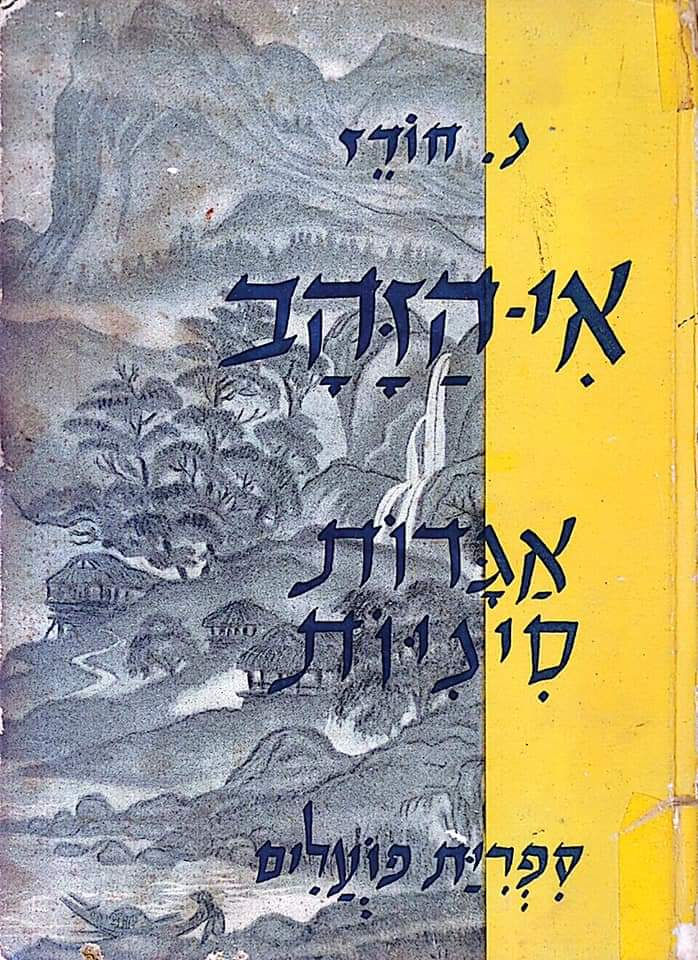 נ. חוֹדֵז
אִי-הַזָּהָב
אַגָּדוֹת
סִינִיּוֹת
סִפְרִיַּת פּוֹעֲלִים